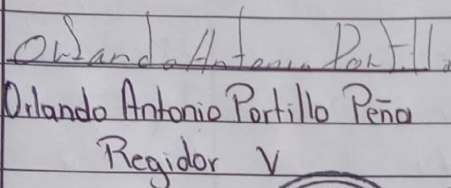 Orlando Antonio Portillo
Orlando Antonio Portillo Peña
Regidor V